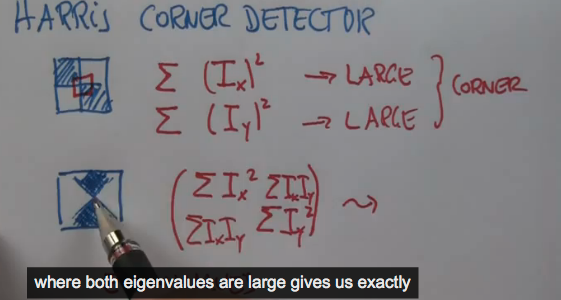 HARRIS CORNER DETECTOR
Σ (Ix)² → LARGE
Σ (Iy)² → LARGE } CORNER
(ΣIx² ΣIxIy
ΣIxIy ΣIy²) ⇝
where both eigenvalues are large gives us exactly